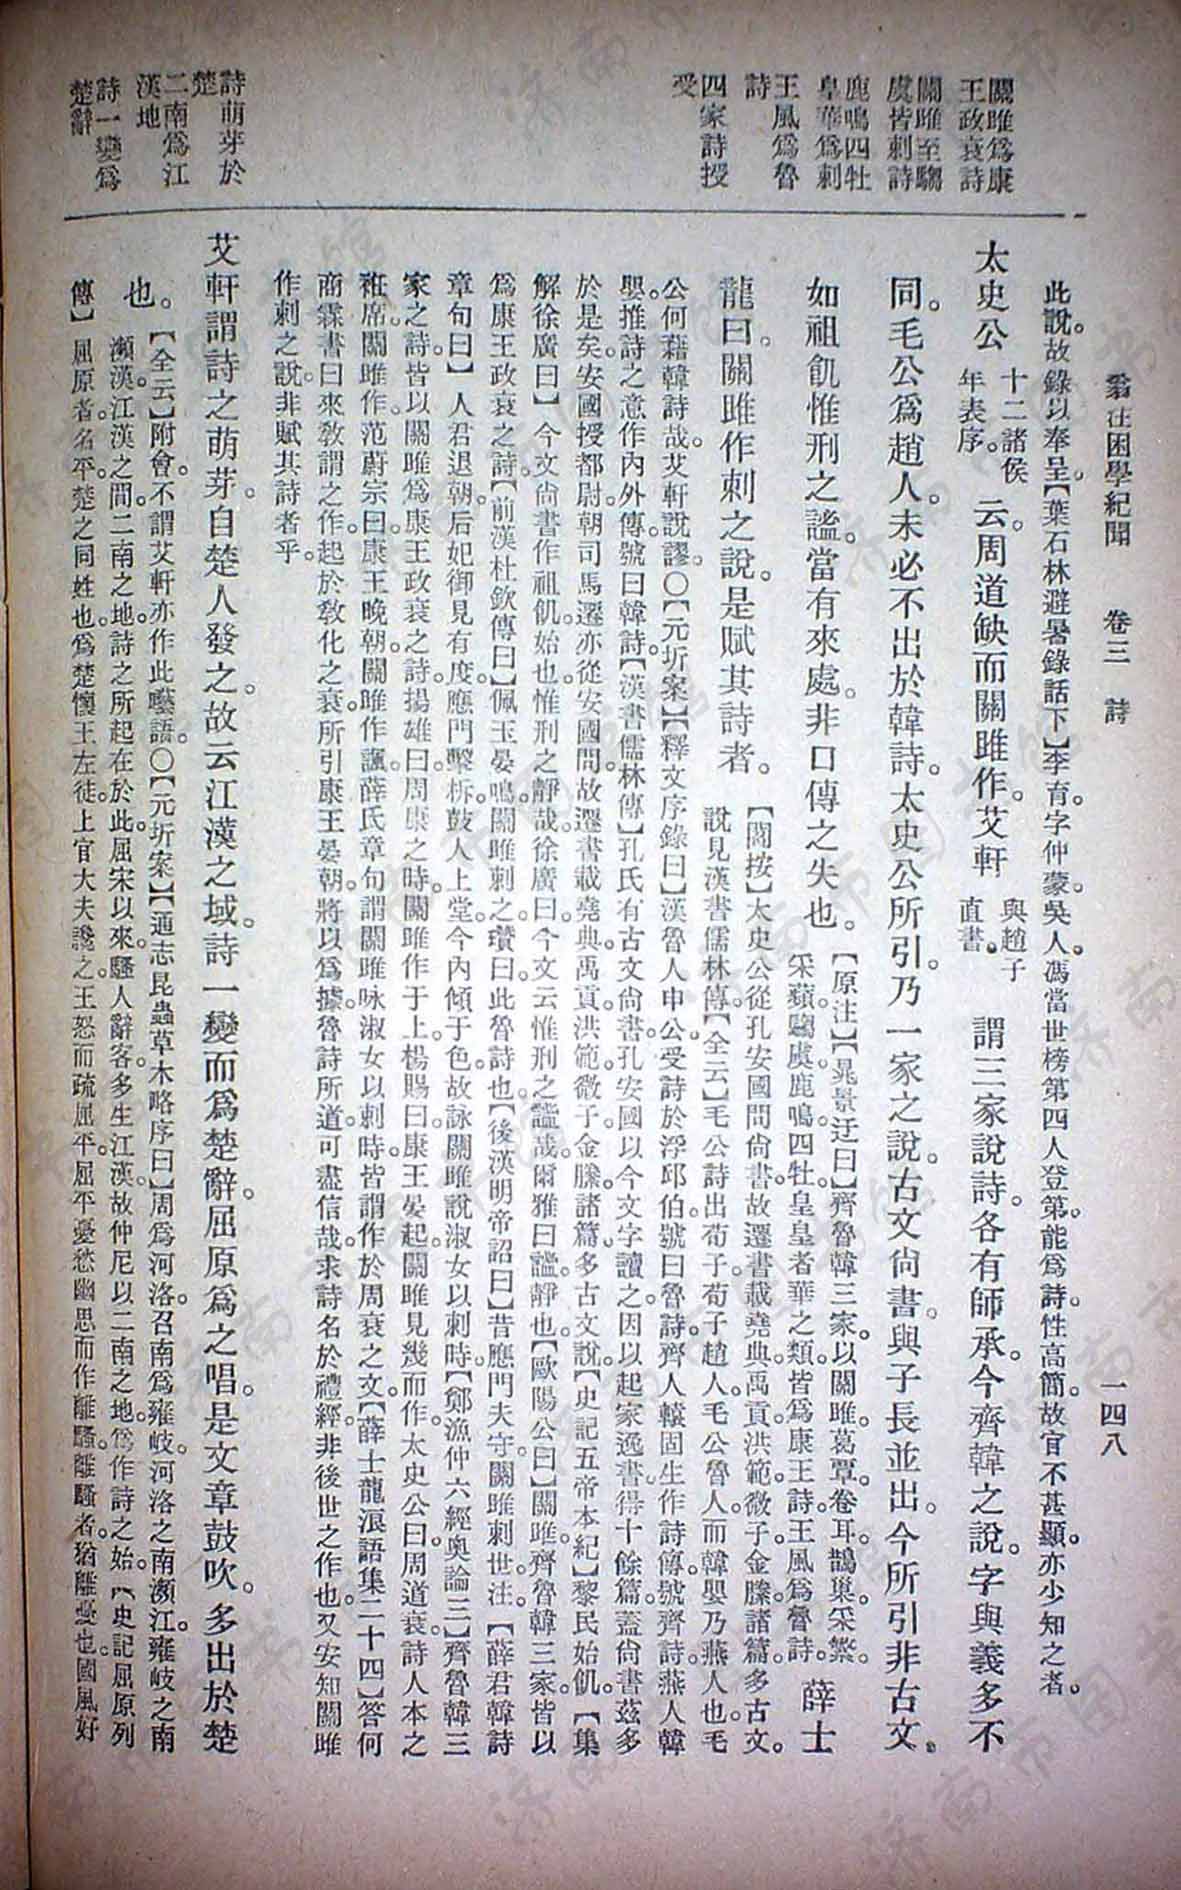 翁注困學紀聞　卷三　詩　一四八
關雎爲康
王政衰詩
關雎至騶
虞皆刺詩
鹿鳴四牡
皇華爲刺
王風爲魯
詩
四家詩授
受
詩萌芽於
楚
二南爲江
漢地
詩一變爲
楚辭
此說。故錄以奉呈。【葉石林避暑錄話下】李育。字仲蒙。吳人。馮當世榜第四人登第。能爲詩。性高簡。故官不甚顯。亦少知之者。
太史公十二諸侯年表序。云。周道缺而關雎作。艾軒與趙子直書。謂三家說詩。各有師承。今齊韓之說。字與義多不
同。毛公爲趙人。未必不出於韓詩。太史公所引。乃一家之說。古文尙書。與子長並出。今所引非古文。
如祖飢惟刑之謐。當有來處。非口傳之失也。【原注】【晁景迂曰】齊魯韓三家。以關雎。葛覃。卷耳。鵲巢。采蘩。采蘋。騶虞。鹿鳴。四牡。皇皇者華之類。皆爲康王詩。王風爲魯詩。薛士
龍曰。關雎作刺之說。是賦其詩者。【閻按】太史公從孔安國問尙書。故遷書載堯典。禹貢。洪範。微子。金縢諸篇。多古文。說見漢書儒林傳。【全云】毛公詩出荀子。荀子趙人。毛公魯人。而韓嬰乃燕人也。毛
公何藉韓詩哉。艾軒說謬。〇【元圻案】【釋文序錄曰】漢魯人申公。受詩於浮邱伯。號曰魯詩。齊人轅固生作詩傳。號齊詩。燕人韓
嬰。推詩之意。作內外傳。號曰韓詩。【漢書儒林傳】孔氏有古文尙書。孔安國以今文字讀之。因以起家逸書。得十餘篇。蓋尙書茲多
於是矣。安國授都尉朝。司馬遷亦從安國問故。遷書載堯典。禹貢。洪範。微子。金縢諸篇。多古文說。【史記五帝本紀】黎民始飢。【集
解徐廣曰】今文尙書作祖飢。始也。惟刑之靜哉。徐廣曰。今文云惟刑之謐哉。爾雅曰。謐。靜也。【歐陽公曰】關雎。齊魯韓三家。皆以
爲康王政衰之詩。【前漢杜欽傳曰】佩玉晏鳴。關雎刺之。瓚曰。此魯詩也。【後漢明帝詔曰】昔應門失守。關雎刺世。注。【薛君韓詩
章句曰】人君退朝。后妃御見有度。應門擊柝。鼓人上堂。今內傾于色。故詠關雎。說淑女以刺時。【鄭漁仲六經奧論三】齊魯韓三
家之詩。皆以關雎爲康王政衰之詩。揚雄曰。周康之時。關雎作于上。楊賜曰。康王晏起。關雎見幾而作。太史公曰。周道衰。詩人本之
衽席。關雎作。范蔚宗曰。康王晚朝。關雎作諷。薛氏章句。謂關雎咏淑女以刺時。皆謂作於周衰之文。【薛士龍浪語集二十四】答何
商霖書曰。來敎謂之作。起於敎化之衰。所引康王晏朝。將以爲據。魯詩所道。可盡信哉。求詩名於禮經。非後世之作也。又安知關雎
作刺之說。非賦其詩者乎。
艾軒謂詩之萌芽。自楚人發之。故云江漢之域。詩一變而爲楚辭。屈原爲之唱。是文章鼓吹。多出於楚
也。【全云】附會。不謂艾軒亦作此囈語。〇【元圻案】【通志昆蟲草木略序曰】周爲河洛。召南爲雍岐。河洛之南瀕江。雍岐之南
瀕漢。江漢之間。二南之地。詩之所起在於此。屈宋以來。騷人辭客。多生江漢。故仲尼以二南之地。爲作詩之始。【史記屈原列
傳】屈原者。名平。楚之同姓也。爲楚懷王左徒。上官大夫讒之。王怒而疏屈平。屈平憂愁幽思而作離騷。離騷者。猶離憂也。國風好